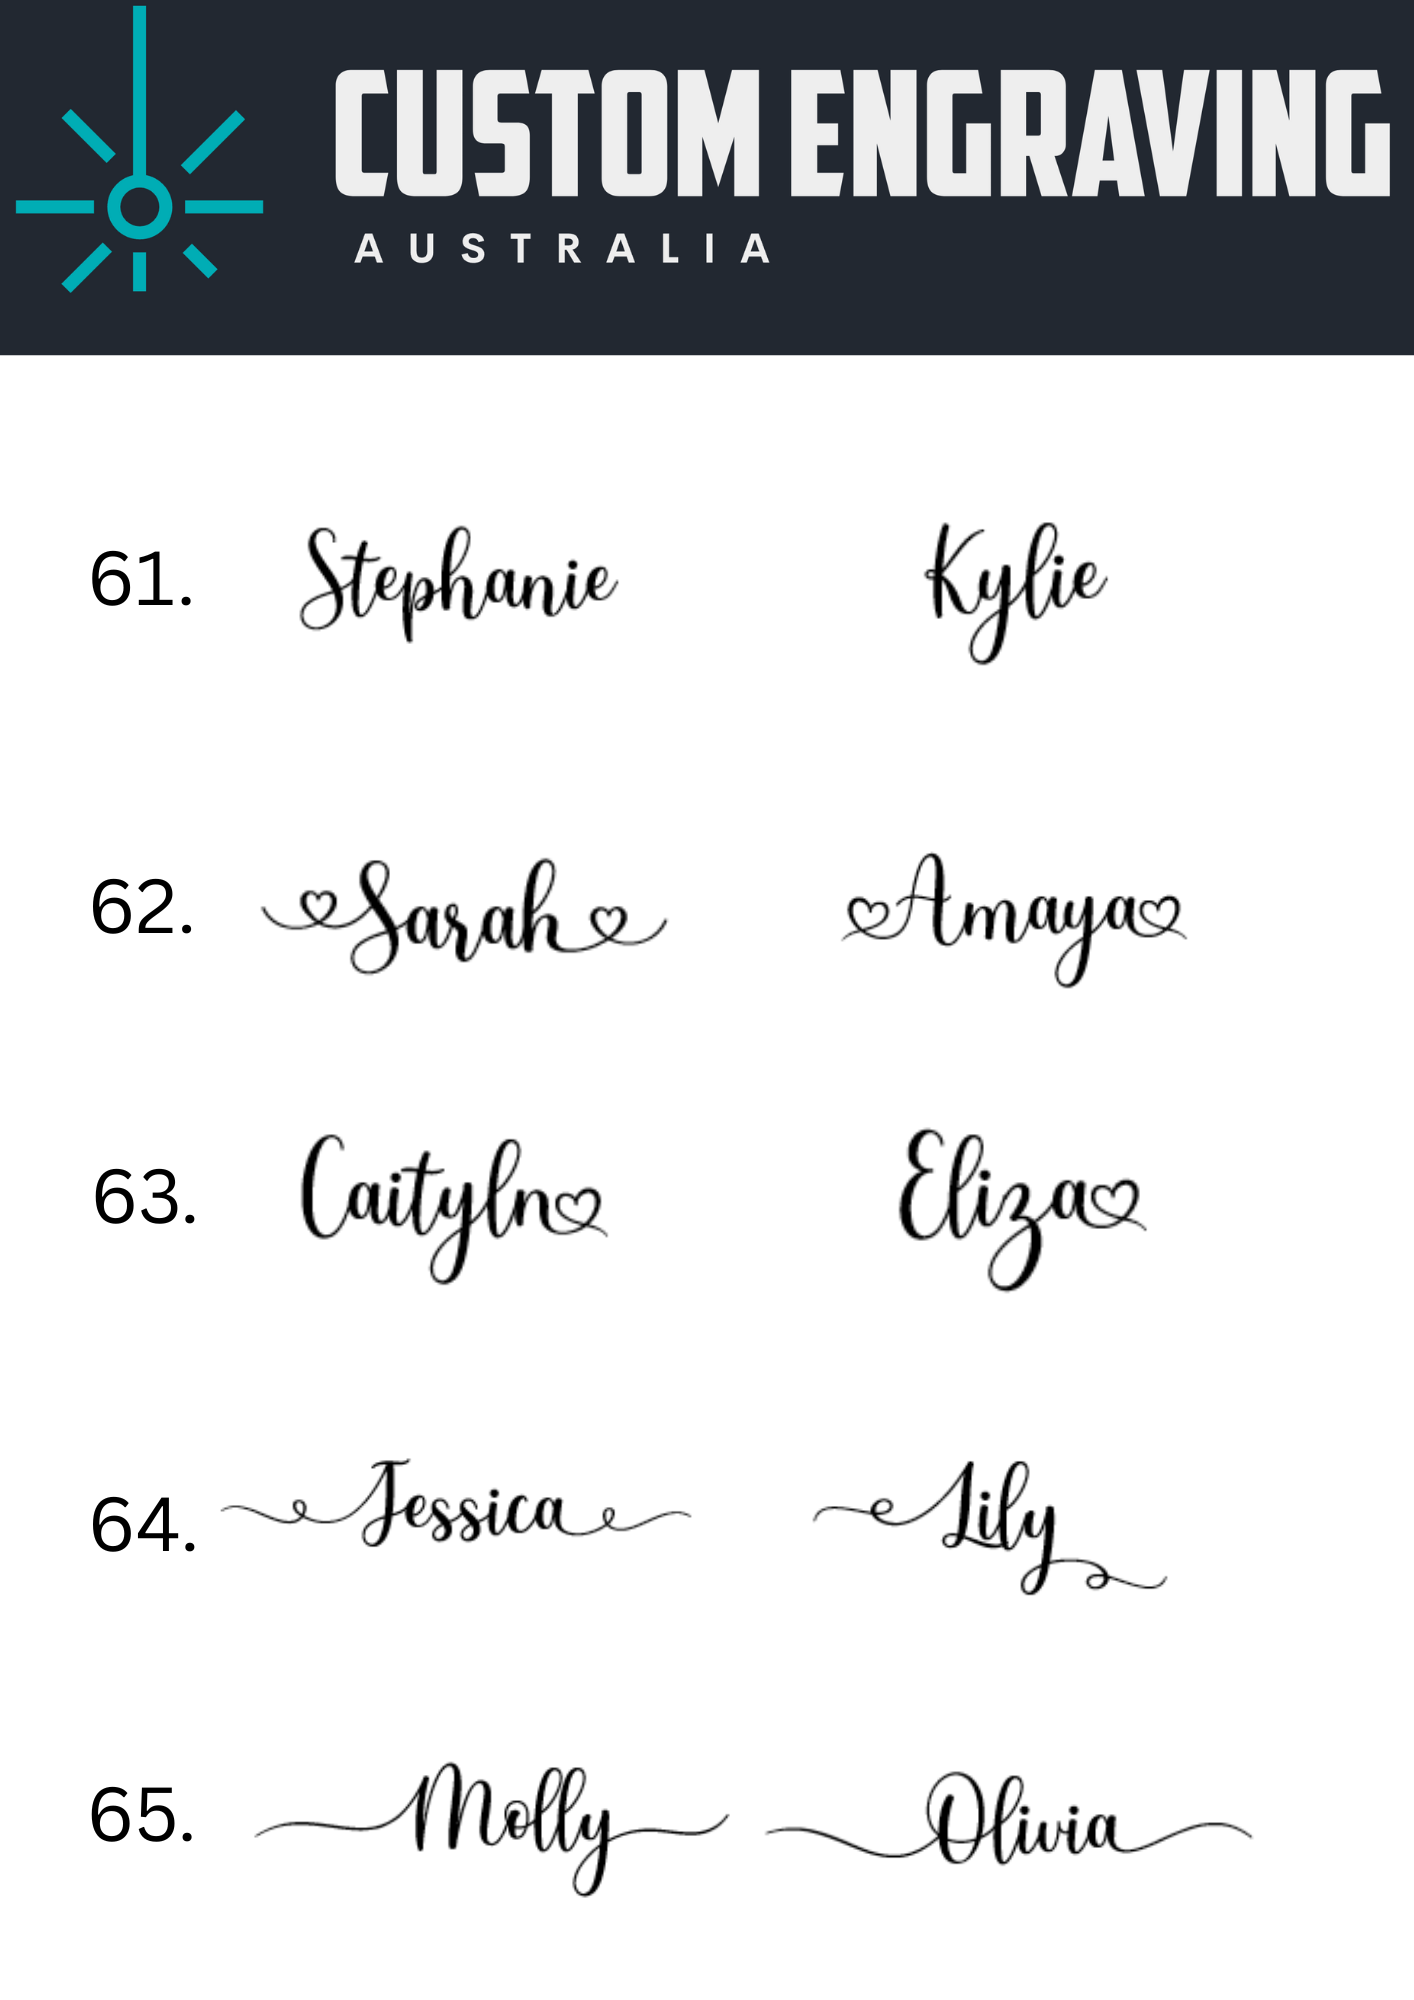 CUSTOM ENGRAVING
AUSTRALIA
61. Stephanie Kylie
62. Sarah Amaya
63. Caityln Eliza
64. Jessica Lily
65. Molly Olivia